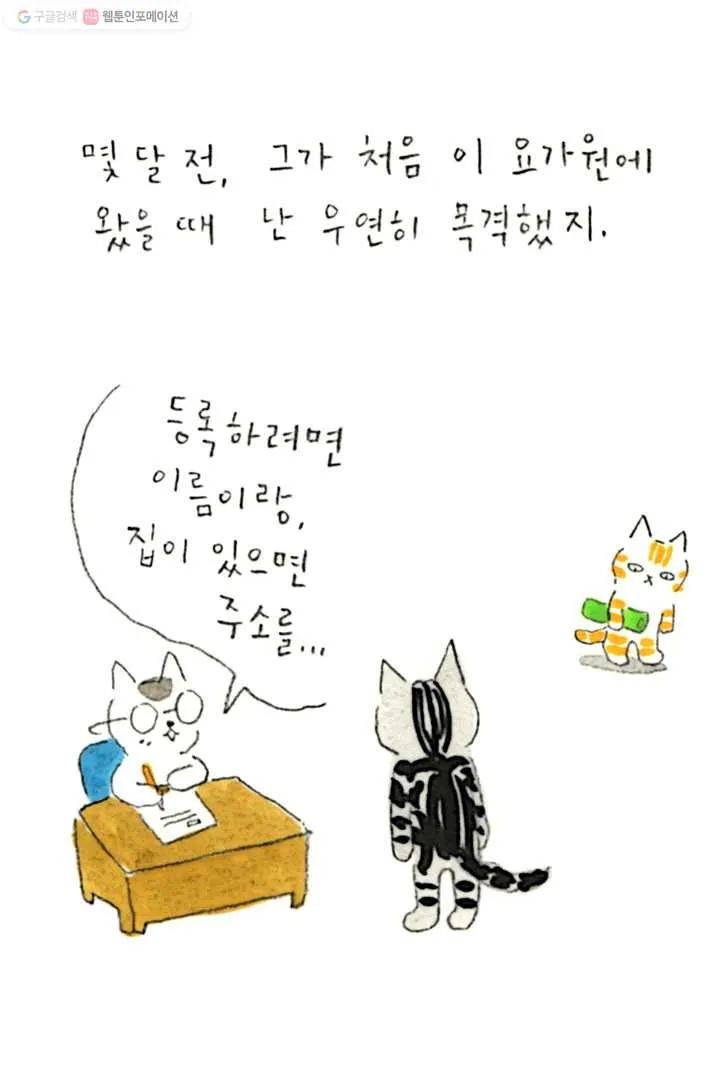 구글검색 웹툰인포메이션
몇 달 전, 그가 처음 이 요가원에
왔을 때 난 우연히 목격했지.
등록하려면
이름이랑,
집이 있으면
주소를...